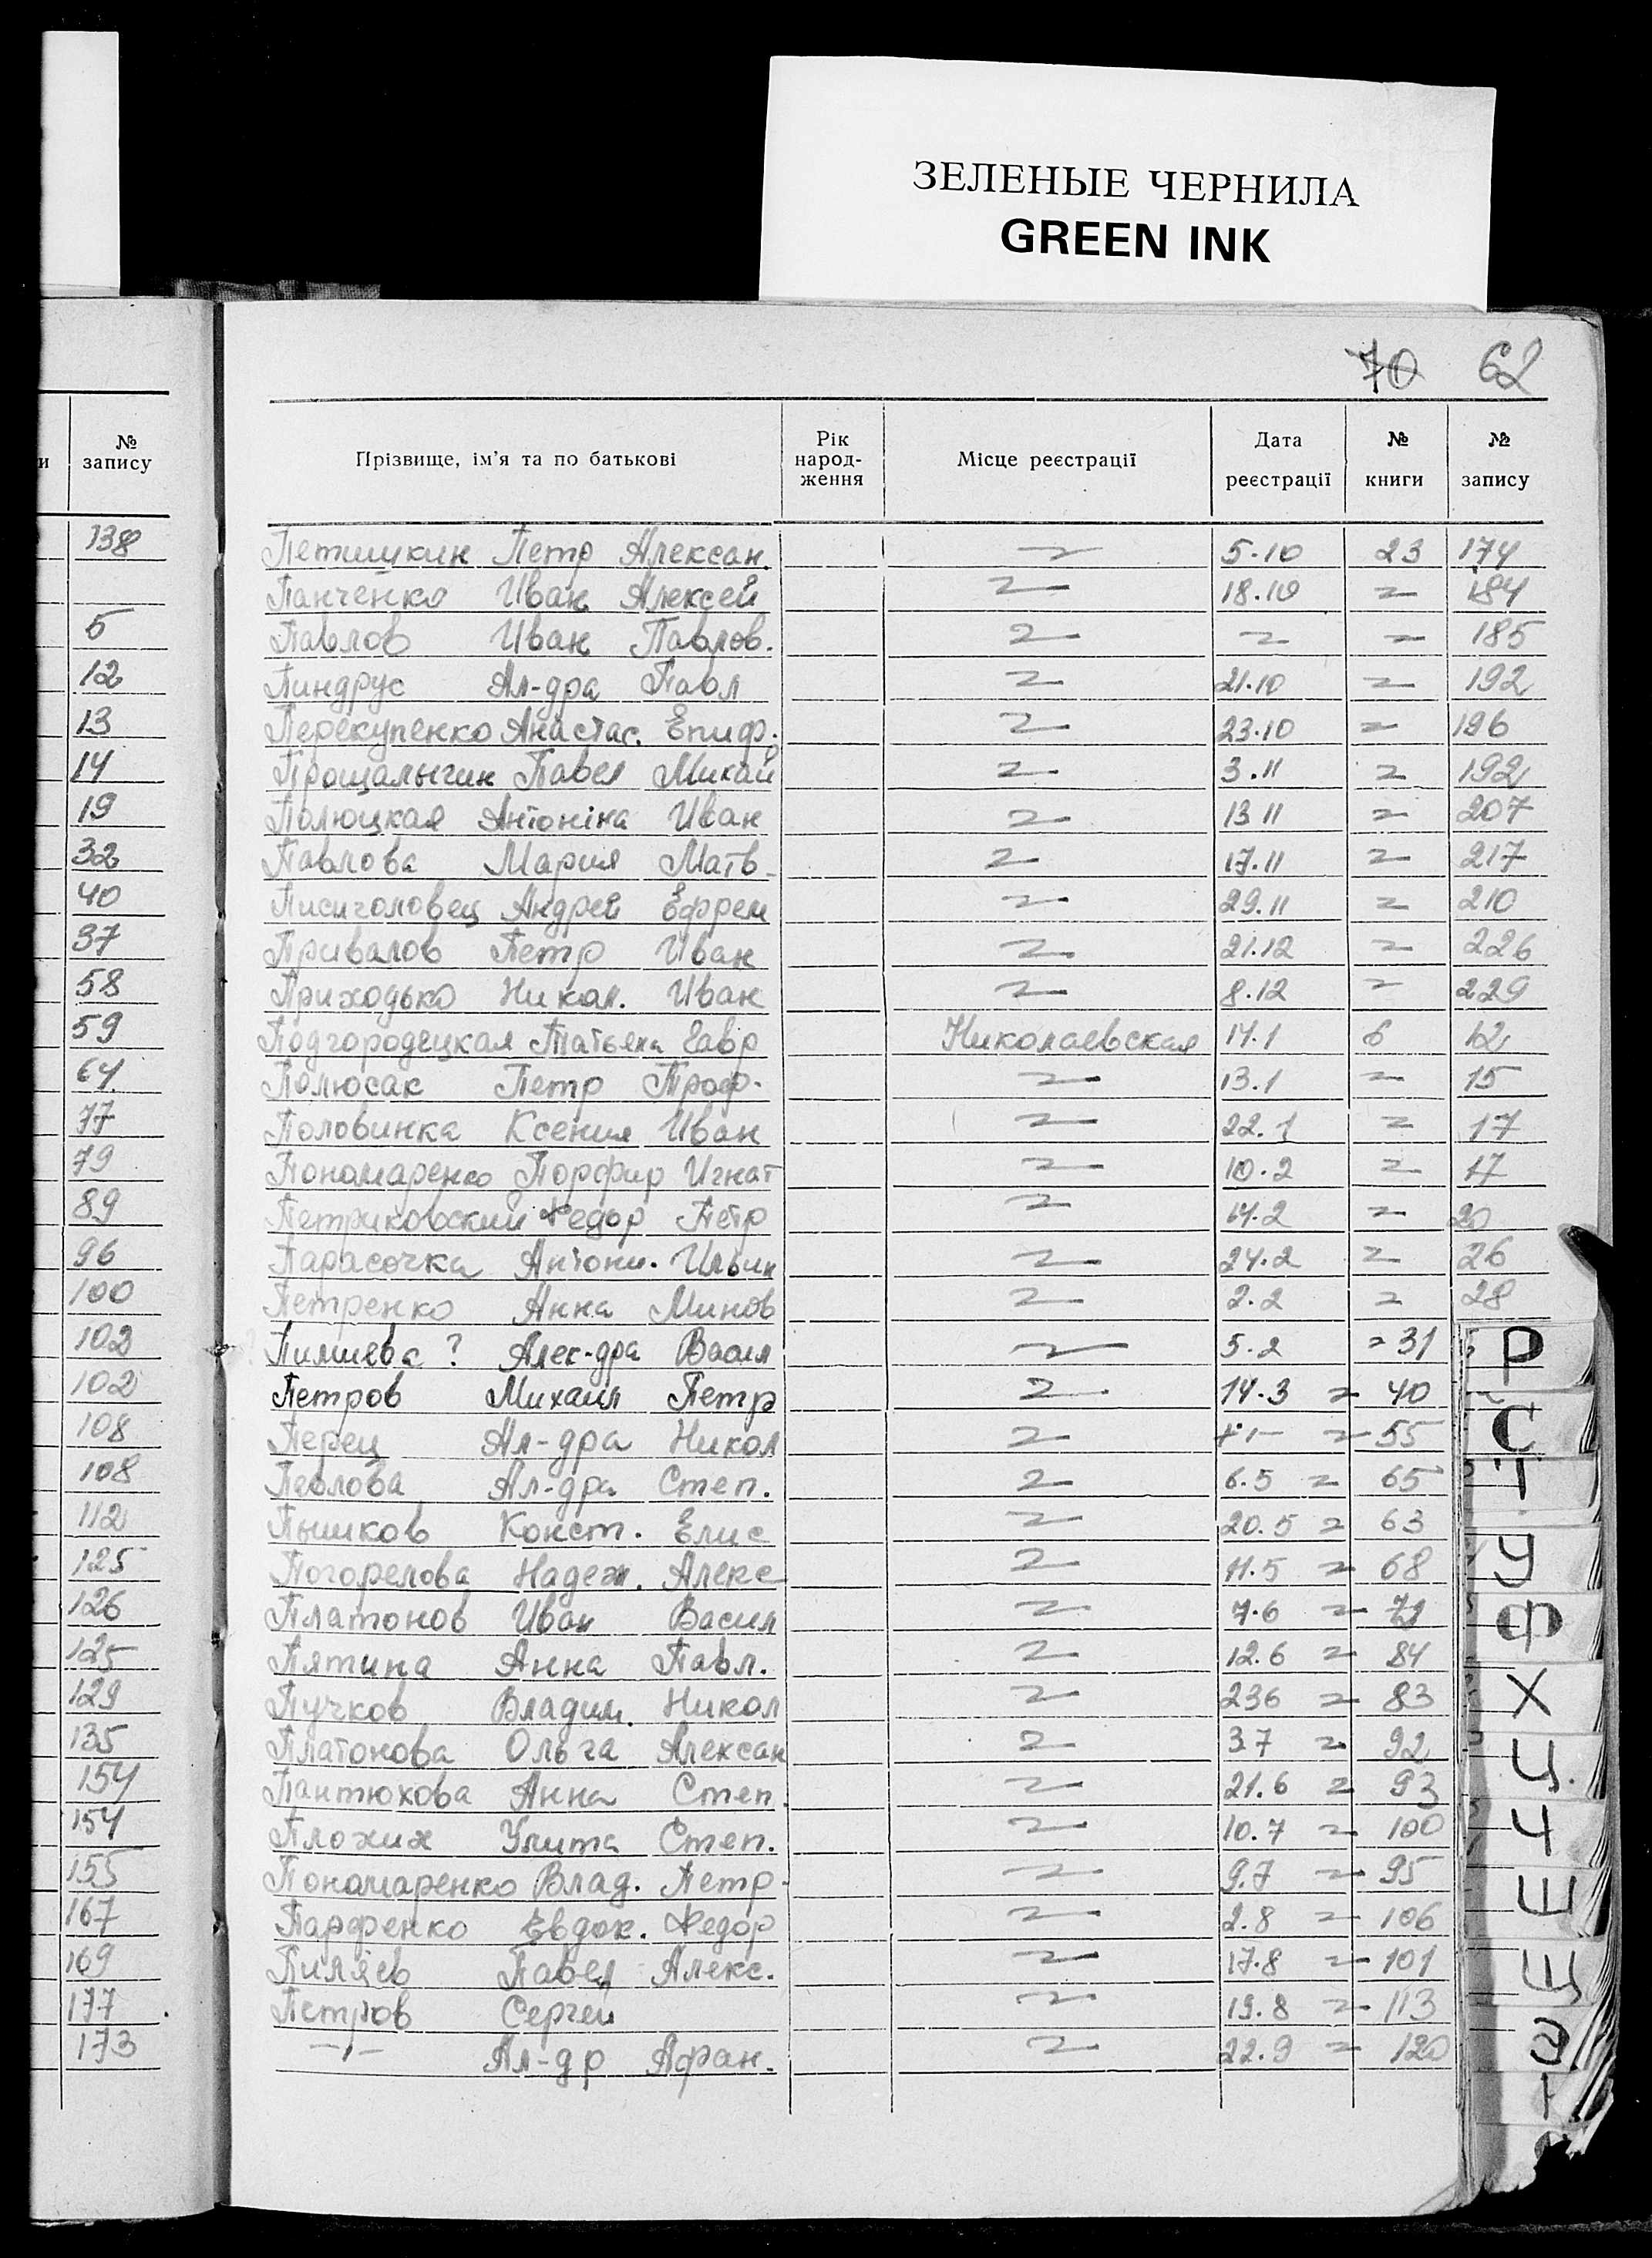 ЗЕЛЕНЫЕ ЧЕРНИЛА
GREEN INK
70 62
№ запису
138
5
12
13
14
19
32
40
37
58
59
64
77
79
89
96
100
102
102
108
108
112
125
126
125
129
135
154
154
155
167
169
177
173
Прізвище, ім’я та по батькові Рік народ-ження Місце реєстрації Дата реєстрації № книги № запису
Петишкин Петр Алексан. 〃 5.10 23 174
Панченко Иван Алексей 〃 18.10 〃 184
Павлов Иван Павлов. 〃 〃 〃 185
Пиндрус Ал-дра Павл 〃 21.10 〃 192
Перекупенко Анастас. Епиф. 〃 23.10 〃 196
Прощалыгин Павел Михай 〃 3.11 〃 192
Полюцкая Антоніна Иван 〃 13 11 〃 207
Павлова Мария Матв- 〃 17.11 〃 217
Писиголовец Андрей Ефрем 〃 29.11 〃 210
Привалов Петр Иван 〃 21.12 〃 226
Приходько Никол. Иван 〃 8.12 〃 229
Подгородецкая Татьяна Гавр Николаевская 14.1 6 12
Полюсак Петр Проф. 〃 13.1 〃 15
Половинка Ксения Иван 〃 22.1 〃 17
Пономаренко Порфир Игнат 〃 10.2 〃 17
Петриковский Федор Петр 〃 14.2 〃 20
Парасочка Антони. Ильин 〃 24.2 〃 26
Петренко Анна Минов 〃 2.2 〃 28
Пилиева ? Алек-дра Васил 〃 5.2 〃 31
Петров Михаил Петр 〃 14.3 〃 40
Перец Ал-дра Никол 〃 〃 55
Павлова Ал-дра Степ. 〃 6.5 〃 65
Пышков Конст. Елис 〃 20.5 〃 63
Погорелова Надеж. Алекс 〃 11.5 〃 68
Платонов Иван Васил 〃 7.6 〃 79
Пятина Анна Павл. 〃 12.6 〃 84
Пучков Владим. Никол 〃 236 〃 83
Платонова Ольга Алексан 〃 37 〃 92
Пантюхова Анна Степ. 〃 21.6 〃 93
Плохих Улита Степ. 〃 10.7 〃 100
Пономаренко Влад. Петр. 〃 9.7 〃 95
Парфенко Евдок. Федор 〃 2.8 〃 106
Пиляев Павел Алекс. 〃 17.8 〃 101
Петров Сергей 〃 19.8 〃 113
-〃- Ал-др Афан. 〃 22.9 〃 120
Р
С
Т
У
Ф
Х
Ц
Ч
Ш
Щ
Э